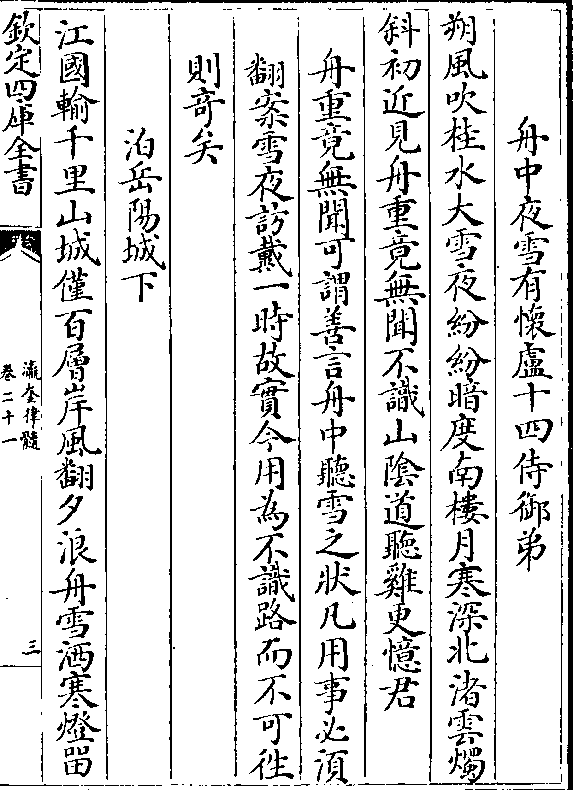 舟中夜雪有懷盧十四侍御弟
朔風吹桂水大雪夜紛紛暗度南樓月寒深北渚雲燭
斜初近見舟重竟無聞不識山陰道聽雞更憶君
舟重竟無聞可謂善言舟中聽雪之狀凡用事必須
翻案雪夜訪戴一時故實今用為不識路而不可徃
則奇矣
泊岳陽城下
江國輸千里山城僅百層岸風翻夕浪舟雪洒寒燈畱
欽定四庫全書
瀛奎律髓
卷二十一
三